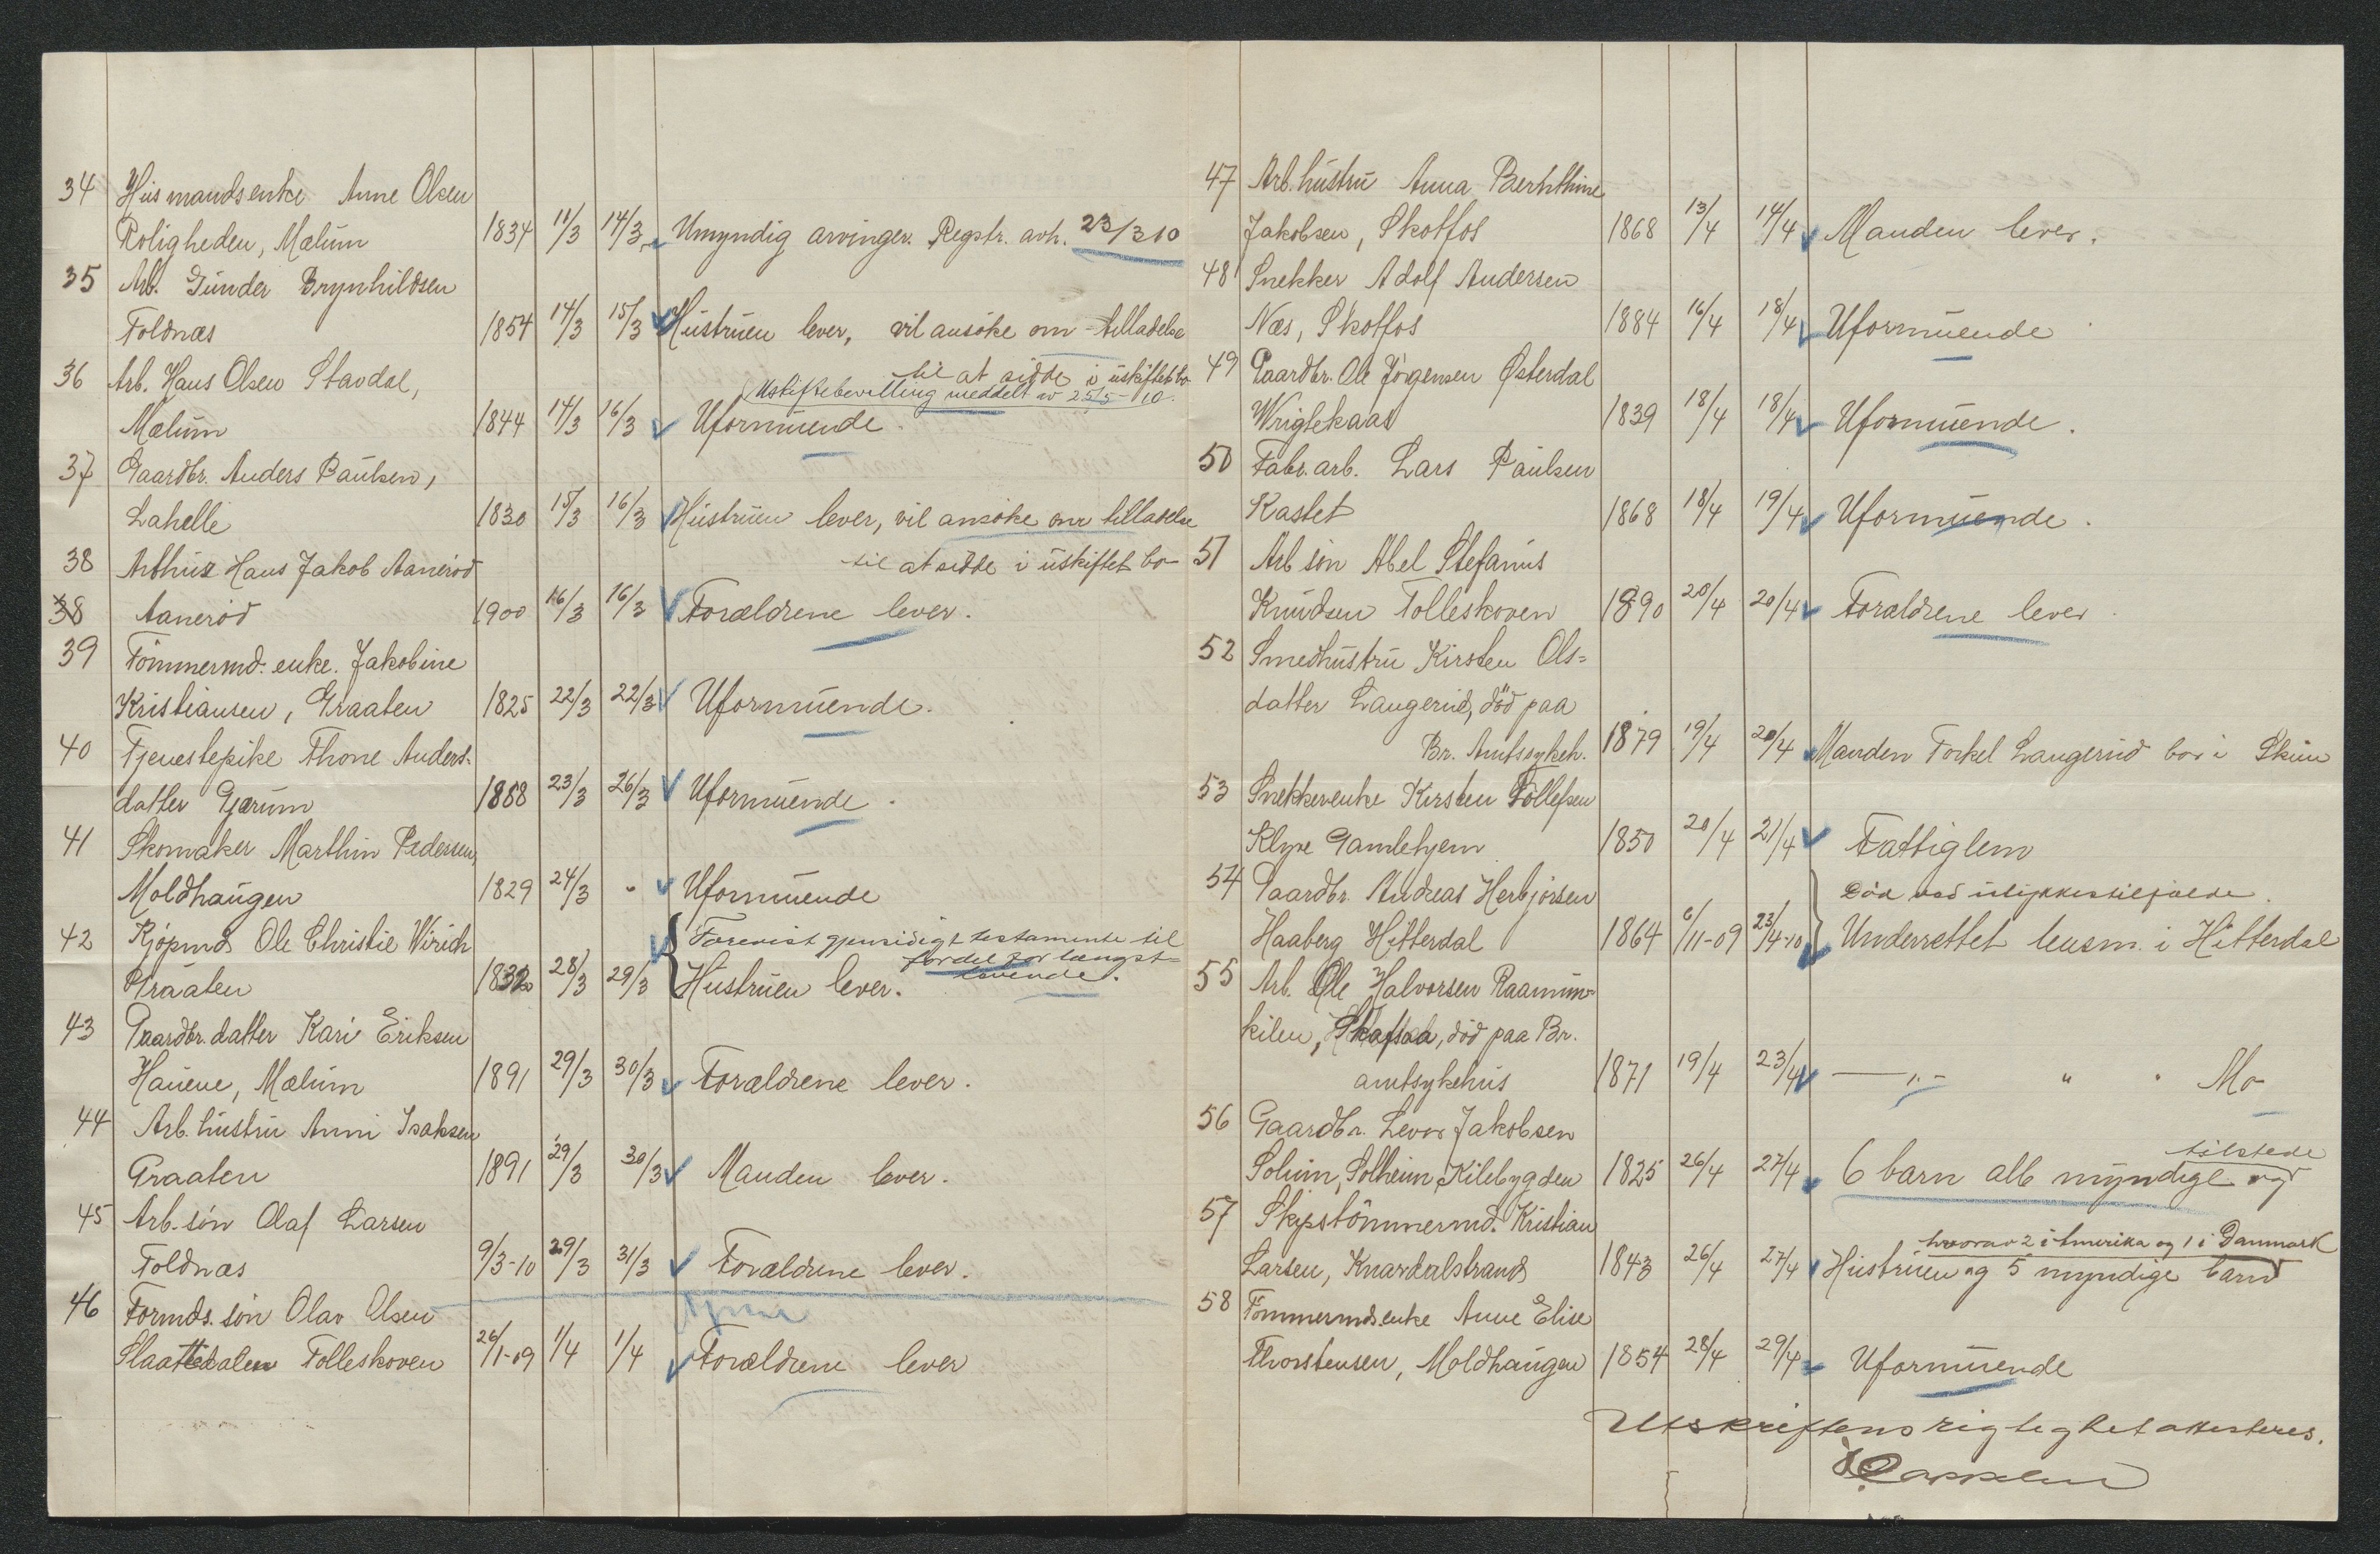 34 Husmandsenke Anne Olsen
Roligheden, Mælum 1834 11/3 14/3 Umyndig arvinger. Regstr. avh. 23/3 10
35 Arb. Gunder Brynhildsen
Foldnæs 1854 14/3 15/3 Hustruen lever, vil ansøke om tilladelse
til at sidde i uskiftet bo
36 Arb. Hans Olsen Stavdal,
Uskiftebevilling meddelt av 25/5-10.
Mælum 1844 14/3 16/3 Uformuende.
37 Gaardbr. Anders Paulsen,
Lahelle 1830 15/3 16/3 Hustruen lever, vil ansøke om tilladelse
til at sidde i uskiftet bo
38 Arthur Hans Jakob Aanerød
38 Aanerød 1900 16/3 16/3 Forældrene lever.
39 Tømmermd. enke. Jakobine
Kristiansen, Graaten 1825 22/3 22/3 Uformuende.
40 Tjenestepike Thone Anders-
datter Gjerum 1888 23/3 26/3 Uformuende.
41 Skomaker Marthin Pedersen,
Moldhaugen 1829 24/3 " Uformuende
42 Kjøpmd. Ole Christie Wirich
Forevist gjensidigt testamente til
fordel for længst-
levende.
Graaten 1832 28/3 29/3 Hustruen lever.
43 Gaardbr. datter Kari Eriksen
Hauene, Mælum 1891 29/3 30/3 Forældrene lever.
44 Arb. hustru Anni Isaksen
Graaten 1891 29/3 30/3 Manden lever.
45 Arb. søn Olaf Larsen
Foldnæs 9/3-10 29/3 31/3 Forældrene lever.
46 Formds. søn Olav Olsen
Slaattedalen Tolleskoven 26/1-09 1/4 1/4 Forældrene lever
47 Arb. hustru Anna Berhthine
Jakobsen, Skotfos 1868 13/4 14/4 Manden lever.
48 Snekker Adolf Andersen
Næs, Skotfos 1884 16/4 18/4 Uformuende
49 Gaardbr. Ole Jørgensen Østerdal
Wriglekaas 1839 18/4 18/4 Uformuende.
50 Fabr. arb. Lars Paulsen
Kastet 1868 18/4 19/4 Uformuende.
51 Arb søn Abel Stefanus
Knudsen Tolleskoven 1890 20/4 20/4 Forældrene lever
52 Smedhustru Kirsten Ols=
datter Langerud, død paa
Br. Amtssykeh. 1879 19/4 20/4 Manden Torkel Langerud bor i Skien
53 Snekkerenke Kirsten Tollefsen
Klyve Gamlehjem 1850 20/4 21/4 Fattiglem
54 Gaardbr. Andreas Herbjørsen
Død ved ulykkestilfælde.
Haaberg Hitterdal 1864 6/11-09 23/4-10 Underrettet lensm. i Hitterdal
55 Arb. Ole Halvorsen Raamun-
kilen, Skafsaa, død paa Br.
amtsykehus 1871 19/4 23/4 —"— " " Mo
56 Gaardbr. Levor Jakobsen
tilstede
Solum, Solheim, Kilebygden 1825 26/4 27/4 6 barn alle myndige og
57 Skipstømmermd. Kristian
hvorav 2 i Amerika og 1 i Danmark
Larsen, Knardalstrand 1843 26/4 27/4 Hustruen og 5 myndige barn
58 Tømmermdsenke Anne Elise
Thorstensen, Moldhaugen 1854 28/4 29/4 Uformuende
Utskriftens rigtighet attesteres.
Cappelen